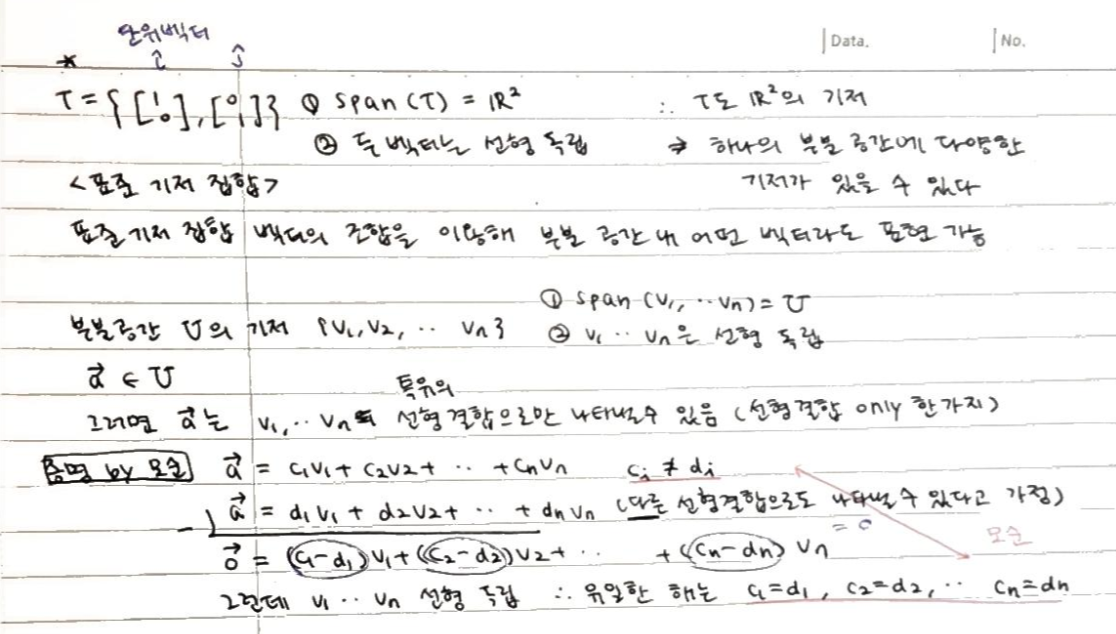 단위벡터
* î ĵ
Data. No.
T = {[1 0], [0 1]} ① span(T) = ℝ² ∴ T도 ℝ²의 기저
② 두 벡터는 선형 독립 ⇒ 하나의 부분 공간에 다양한
<표준 기저 집합> 기저가 있을 수 있다
표준 기저 집합 벡터의 조합을 이용해 부분 공간 내 어떤 벡터라도 표현 가능
① span (v₁, ·· vn) = U
부분공간 U의 기저 {v₁, v₂, ·· vn} ② v₁ ·· vn은 선형 독립
a⃗ ∈ U
특유의
그러면 a⃗는 v₁, ·· vn 선형결합으로만 나타낼 수 있음 (선형결합 only 한가지)
증명 by 모순 a⃗ = c₁v₁ + c₂v₂ + ·· + cnvn ci ≠ di
- a⃗ = d₁v₁ + d₂v₂ + ·· + dnvn (다른 선형결합으로도 나타낼 수 있다고 가정)
= 0 모순
0⃗ = (c₁-d₁)v₁ + (c₂-d₂)v₂ + ·· + (cn-dn)vn
그런데 v₁ ·· vn 선형 독립 ∴ 유일한 해는 c₁=d₁, c₂=d₂, ·· cn=dn